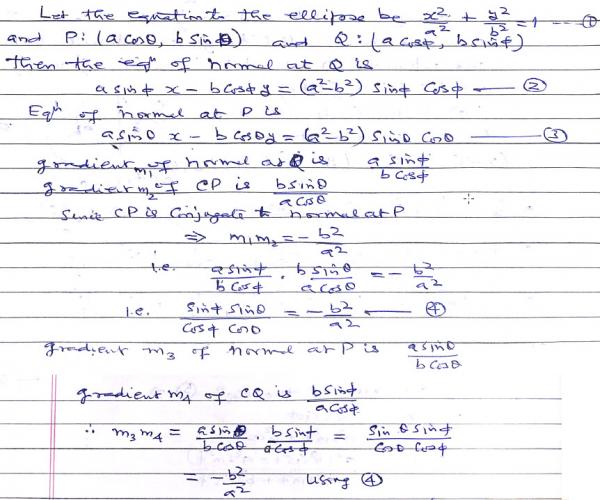 Let the equation to the ellipse be x²/a² + y²/b² = 1 — ①
and P: (a cosθ, b sinθ) and Q: (a cosφ, b sinφ)
then the eqⁿ of normal at Q is
a sinφ x - b cosφ y = (a²-b²) sinφ cosφ — ②
Eqⁿ of normal at P is
a sinθ x - b cosθ y = (a²-b²) sinθ cosθ — ③
gradient m₁ of normal at Q is a sinφ / b cosφ
gradient m₂ of CP is b sinθ / a cosθ
Since CP is Conjugate to normal at P
⇒ m₁m₂ = - b²/a²
i.e. a sinφ / b cosφ · b sinθ / a cosθ = - b²/a²
i.e. sinφ sinθ / cosφ cosθ = - b²/a² — ④
gradient m₃ of normal at P is a sinθ / b cosθ
gradient m₄ of CQ is b sinφ / a cosφ
∴ m₃m₄ = a sinθ / b cosθ · b sinφ / a cosφ = sinθ sinφ / cosθ cosφ
= - b²/a² using ④